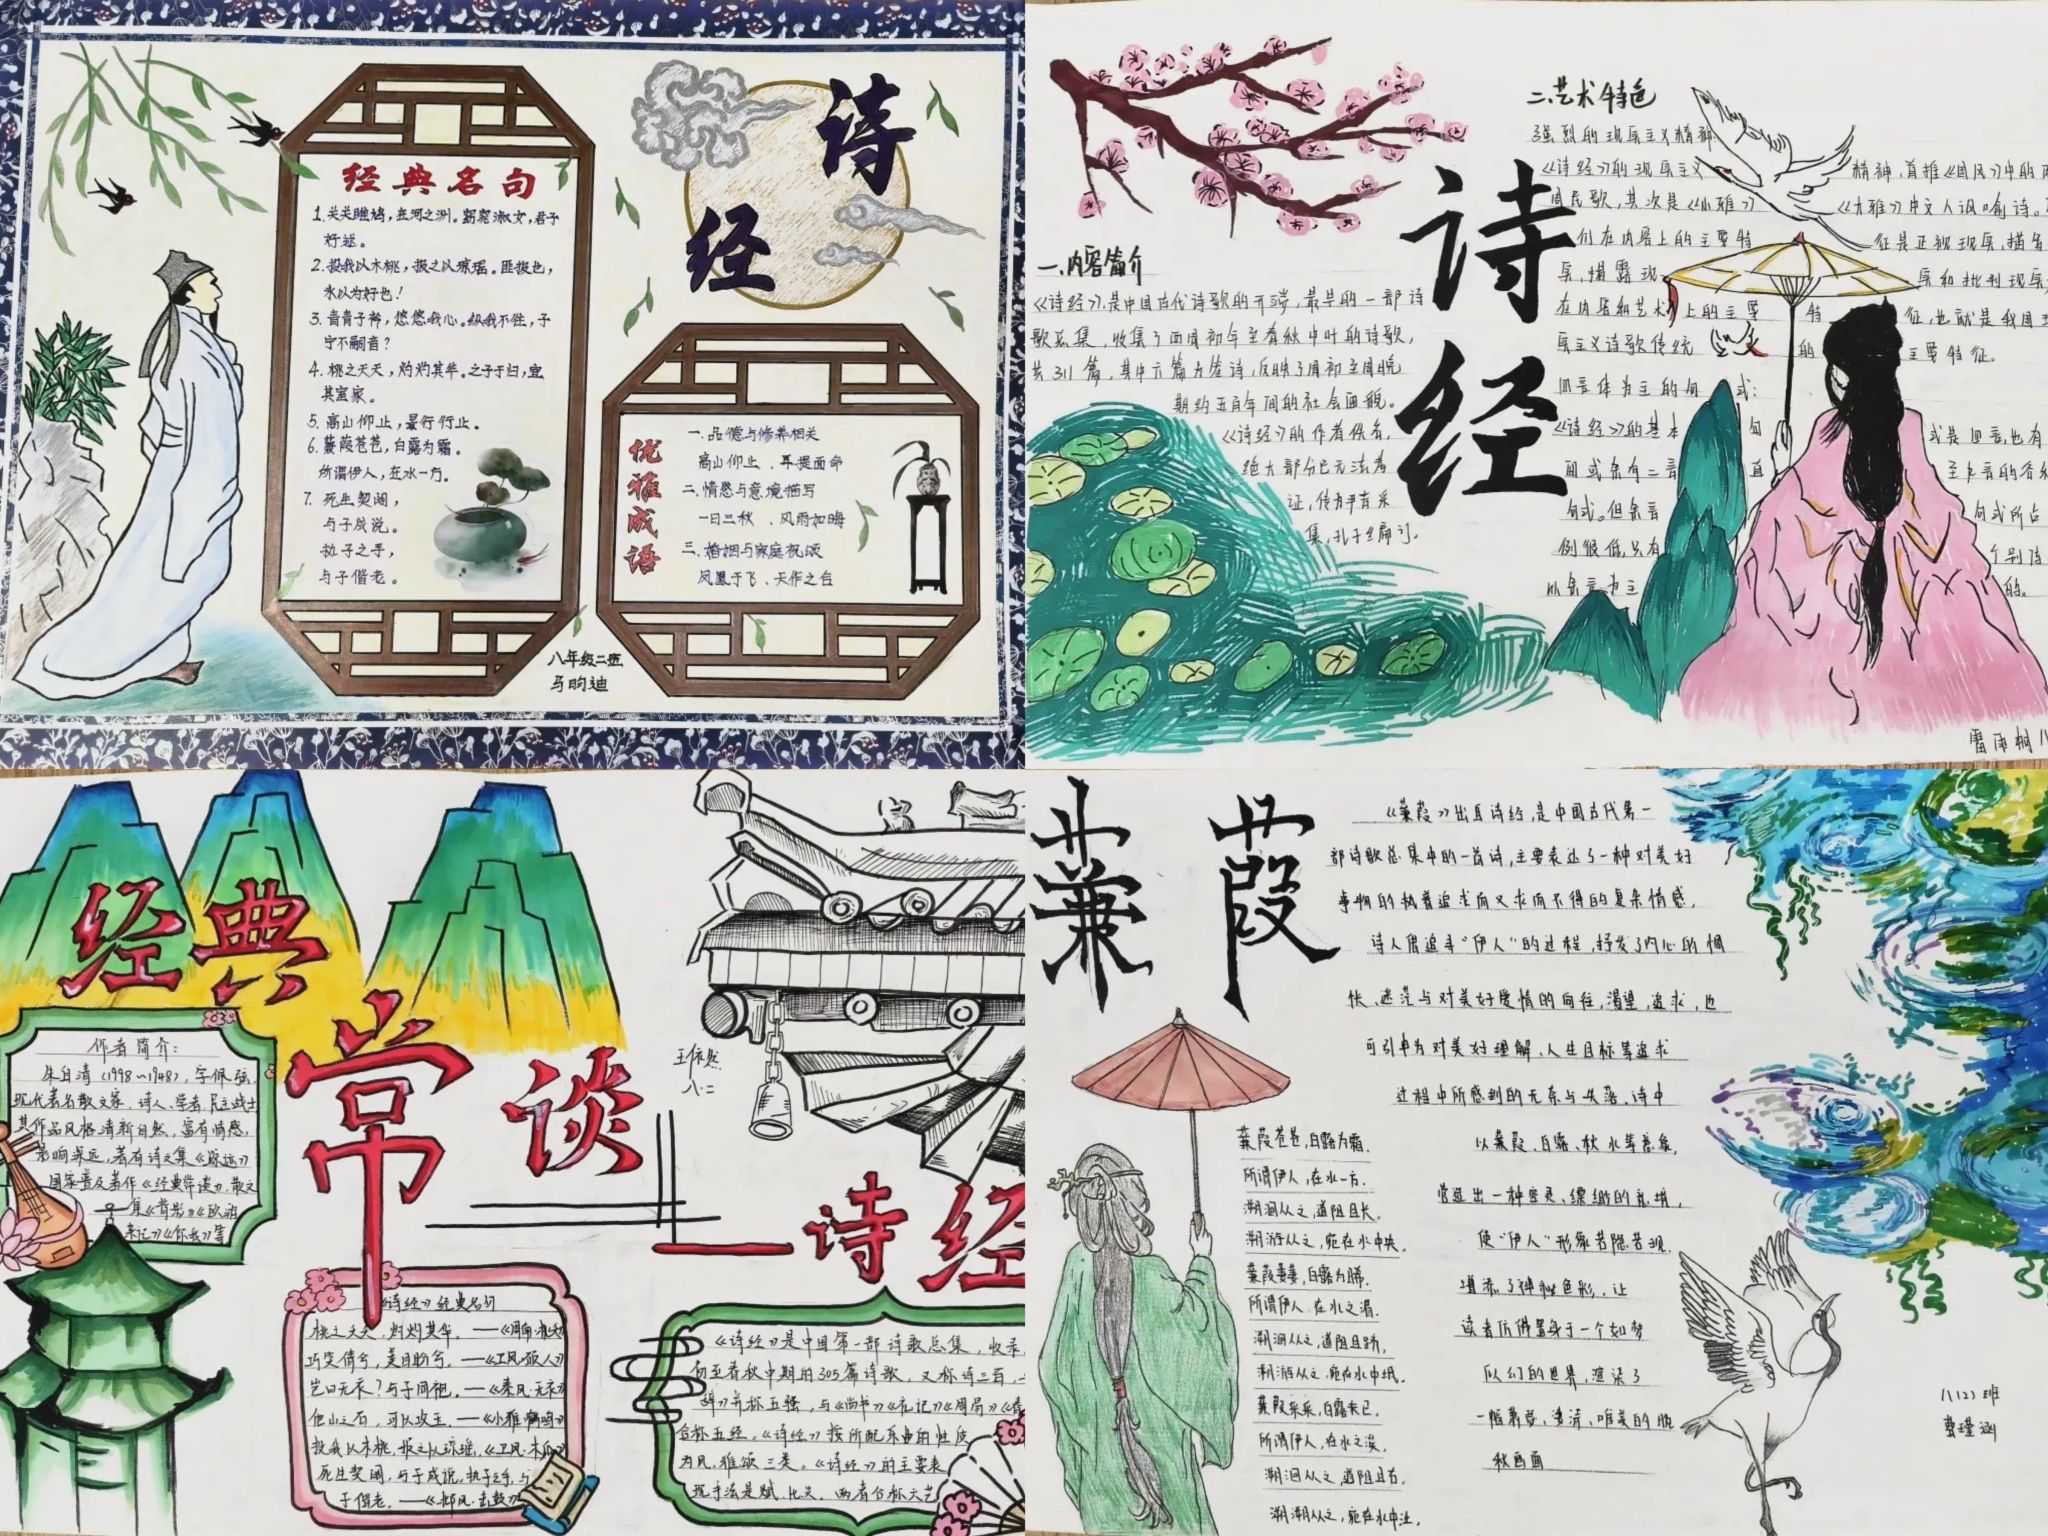 诗
经
经典名句
1.关关雎鸠，在河之洲。窈窕淑女，君子
好逑。
2.投我以木桃，报之以琼瑶。匪报也，
永以为好也！
3.青青子衿，悠悠我心。纵我不往，子
宁不嗣音？
4.桃之夭夭，灼灼其华。之子于归，宜
其室家。
5.高山仰止，景行行止。
6.蒹葭苍苍，白露为霜。
所谓伊人，在水一方。
7.死生契阔，
与子成说。
执子之手，
与子偕老。
优雅成语
一.品德与修养相关
高山仰止、耳提面命
二.情感与意境描写
一日三秋、风雨如晦
三.婚姻与家庭祝颂
凤凰于飞、天作之合
八年级二班
马昀迪
诗
经
一.内容简介
《诗经》，是中国古代诗歌的开端，最早的一部诗
歌总集，收集了西周初年至春秋中叶的诗歌，
共311篇，其中六篇为笙诗，反映了周初至周晚
期约五百年间的社会面貌。
《诗经》的作者佚名，
绝大部分已无法考
证，传为尹吉甫采
集，孔子编订。
二.艺术特色
强烈的现实主义精神
《诗经》的现实主义 精神，首推《国风》中的
周民歌，其次是《小雅》 《大雅》中文人讽喻诗。
们在内容上的主要特 征是正视现实，描
实，揭露现 实和批判现实
在内容和艺术上的主要 特 征，也就是我国
实主义诗歌传统 的 主要特征。
四言体为主的句 式：
《诗经》的基本 句 式是四言，也有
间或杂有二言 直 至七言的各
句式。但杂言 句式所占
例很低，只有 个别诗
以杂言为主 的。
经典
常
谈
诗经
作者简介：
朱自清（1998～1948），字佩弦，
现代著名散文家、诗人、学者、民主战士
其作品风格清新自然，富有情感，
影响深远，著有诗文集《踪迹》
国家普及著作《经典常谈》，散文
集《背影》《欧游
杂记》《你我》等
王依然
八.二
《诗经》经典名句
桃之夭夭，灼灼其华。——《周南·桃夭》
巧笑倩兮，美目盼兮。——《卫风·硕人》
岂曰无衣？与子同袍。——《秦风·无衣》
他山之石，可以攻玉。——《小雅·鹤鸣》
投我以木桃，报之以琼瑶。《卫风·木瓜》
死生契阔，与子成说，执子之手，与
子偕老。——《邶风·击鼓》
《诗经》是中国第一部诗歌总集，收录
初至春秋中期的305篇诗歌，又称诗三百，
合称五经。《诗经》按所配乐曲的性质
为风、雅、颂三类。《诗经》的主要表
现手法是赋、比、兴，两者合称六艺
蒹葭
《蒹葭》出自诗经，是中国古代第一
部诗歌总集中的一首诗，主要表达了一种对美好
事物的执着追求而又求而不得的复杂情感，
诗人借追寻“伊人”的过程，抒发了内心的惆
怅、迷茫与对美好爱情的向往，渴望，追求，也
可引申为对美好理解、人生目标等追求
过程中所感到的无奈与失落。诗中
以蒹葭、白露、秋水等意象，
营造出一种空灵、缥缈的意境，
使“伊人”形象若隐若现，
增添了神秘色彩，让
读者仿佛置身于一个如梦
似幻的世界，渲染了
一幅萧瑟、凄清、唯美的晚
秋画面
蒹葭苍苍，白露为霜，
所谓伊人，在水一方.
溯洄从之，道阻且长，
溯游从之，宛在水中央.
蒹葭萋萋，白露为晞.
所谓伊人，在水之湄.
溯洄从之，道阻且跻，
溯游从之，宛在水中坻.
蒹葭采采，白露未已，
所谓伊人，在水之涘.
溯洄从之，道阻且右，
溯游从之，宛在水中沚.
八(2)班